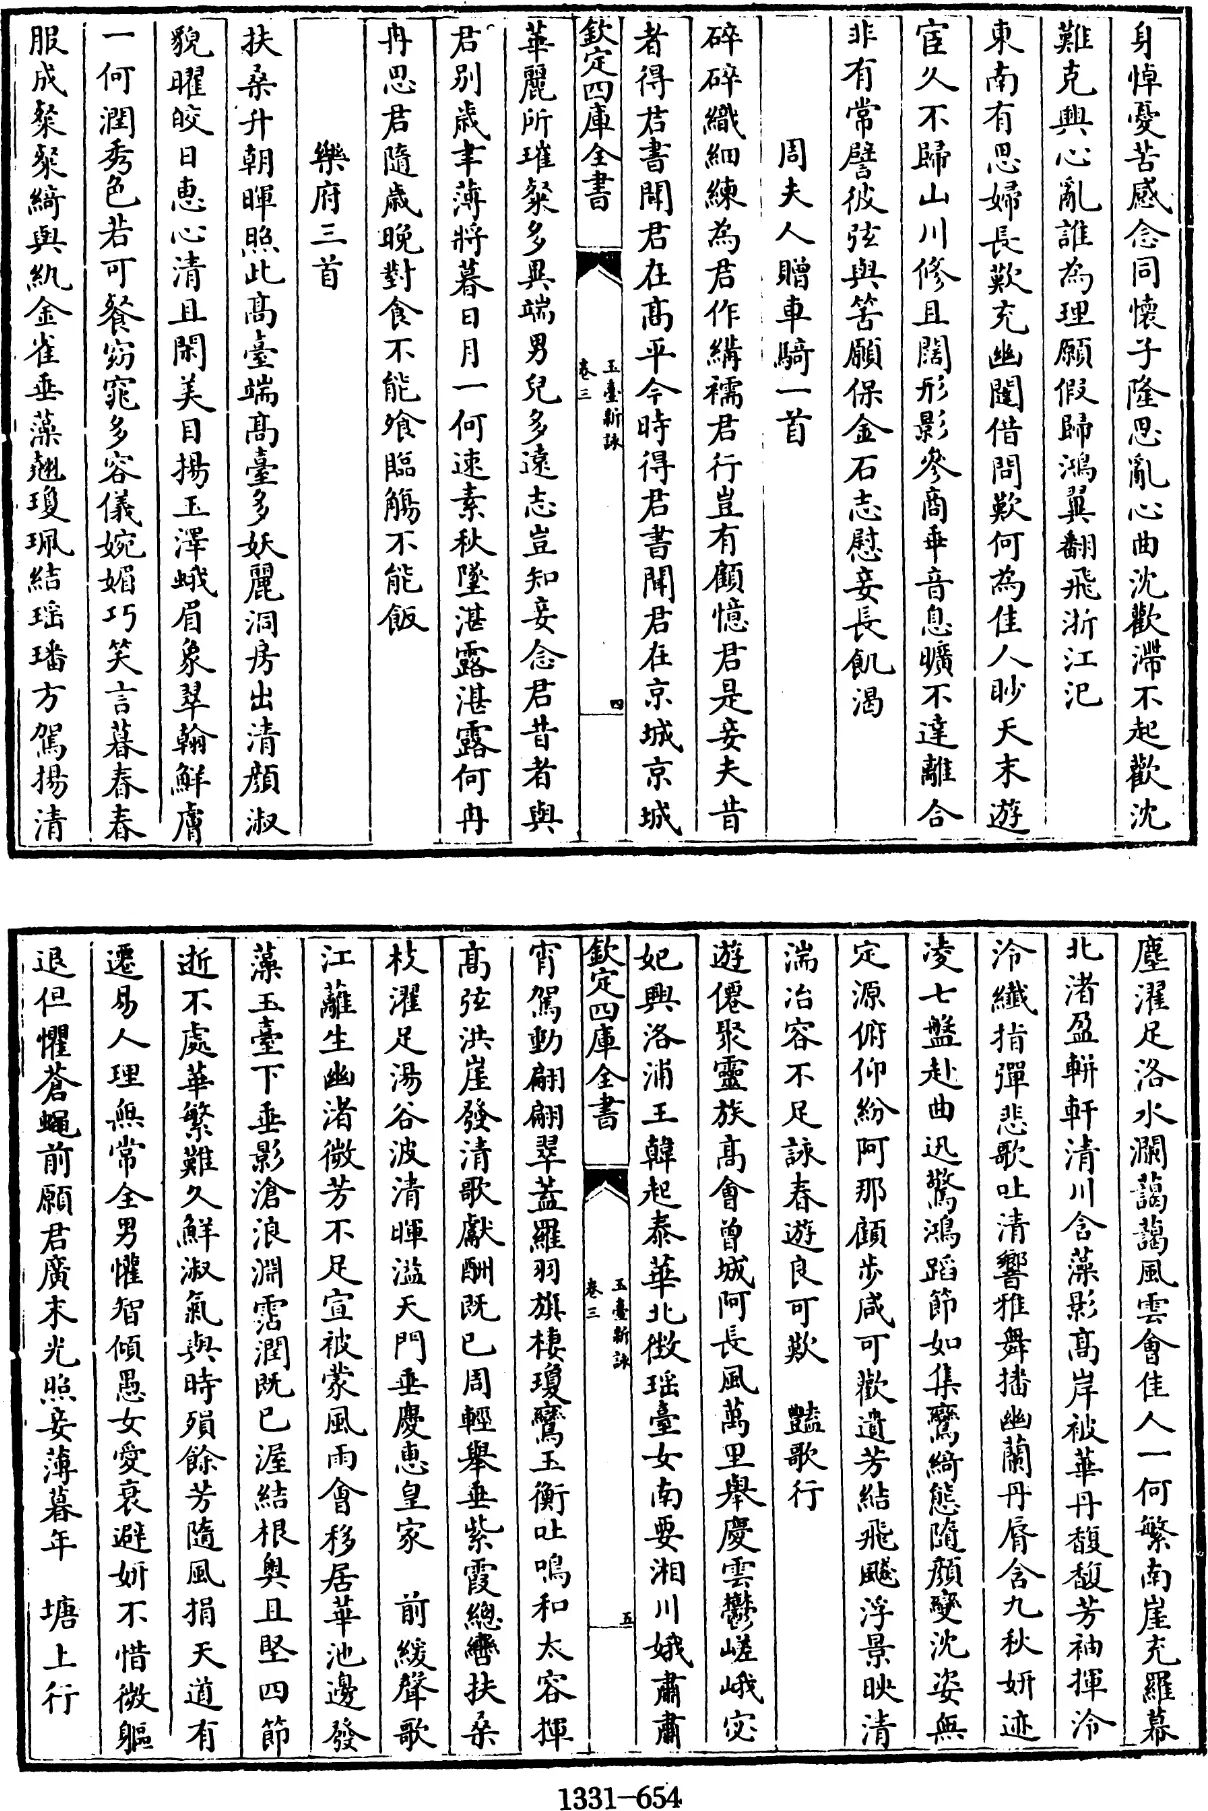 身悼憂苦感念同懷子隆思亂心曲沈歡滯不起歡沈
難克興心亂誰為理願假歸鴻翼翻飛浙江汜
東南有思婦長歎充幽闥借問歎何為佳人眇天末遊
宦久不歸山川修且闊形影參商乖音息曠不達離合
非有常譬彼弦與筈願保金石志慰妾長飢渴
周夫人贈車騎一首
碎碎織細練為君作㡓襦君行豈有顧憶君是妾夫昔
者得君書聞君在高平今時得君書聞君在京城京城
欽定四庫全書
玉臺新詠
卷三
四
華麗所璀粲多異端男兒多遠志豈知妾念君昔者與
君别歲聿薄將暮日月一何速素秋墜湛露湛露何冉
冉思君隨歲晚對食不能飱臨觴不能飯
樂府三首
扶桑升朝暉照此高臺端高臺多妖麗洞房出清顏淑
貌曜皎日惠心清且閑美目揚玉澤蛾眉象翠翰鮮膚
一何潤秀色若可餐窈窕多容儀婉媚巧笑言暮春春
服成粲粲綺與紈金雀垂藻翹瓊珮結瑶璠方駕揚清
塵濯足洛水瀾藹藹風雲會佳人一何繁南崖充羅幕
北渚盈軿軒清川含藻影高岸被華丹馥馥芳袖揮泠
泠纖指彈悲歌吐清響雅舞播幽蘭丹脣含九秋妍迹
凌七盤赴曲迅驚鴻蹈節如集鸞綺態隨顏變沈姿無
定源俯仰紛阿那顧步咸可歡遺芳結飛飈浮景映清
湍冶容不足詠春遊良可歎　豔歌行
遊僊聚靈族高會曾城阿長風萬里舉慶雲鬱嵯峨宓
妃興洛浦王韓起泰華北徴瑶臺女南要湘川娥肅肅
欽定四庫全書
玉臺新詠
卷三
五
宵駕動翩翩翠蓋羅羽旗棲瓊鸞玉衡吐鳴和太容揮
高弦洪崖發清歌獻酬既已周輕舉垂紫霞總轡扶桑
枝濯足湯谷波清暉溢天門垂慶惠皇家　前緩聲歌
江蘺生幽渚微芳不足宣被蒙風雨會移居華池邊發
藻玉臺下垂影滄浪淵霑潤既已渥結根奥且堅四節
逝不處華繁難久鮮淑氣與時殞餘芳隨風捐天道有
遷易人理無常全男懽智傾愚女愛衰避妍不惜微軀
退但懼蒼蠅前願君廣末光照妾薄暮年　塘上行
1331-654